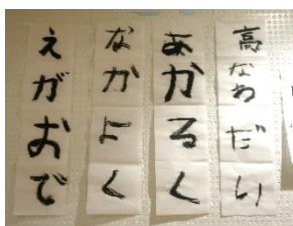 高なわだい
あかるく
なかよく
えがおで